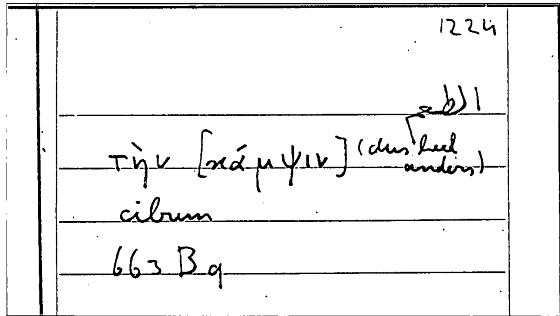 1224
b)1
τὴν [κάμψιν] (dus heel
anders)
cibum
663 B q